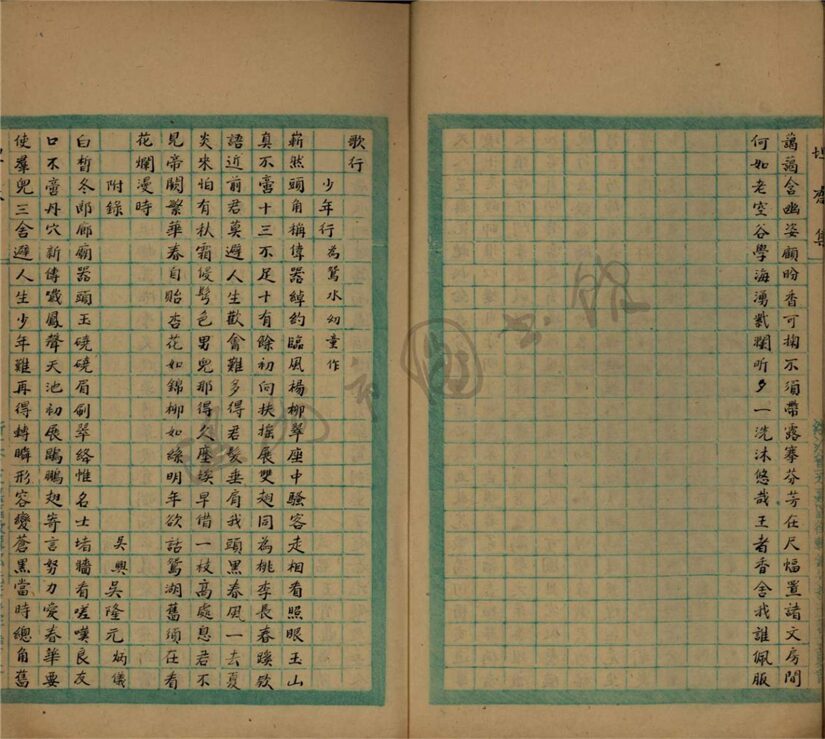 藹藹含幽姿顧盼香可掬不須帶露搴芬芳在尺幅置諸文房間
何如老空谷學海湧瀔闌昕夕一洗沐悠哉王者香舍我誰佩服
歌行
少年行為鴛水幼童作
嶄然頭角稱偉器綽約臨風楊柳翠座中騷客走相看照眼玉山
真不啻十三不足十有餘初向扶搖展雙翅同為桃李長春蹊欵
語近前君莫避人生歡會難多得君髮垂肩我頭黑春風一去夏
炎來怕有秋霜侵鬢色男兒那得久座埃早借一枝高處息君不
見帝闕繁華春自貽杏花如錦柳如絲明年欲話鴛湖舊須在看
花爛漫時
附錄
吳興吳隆元炳儀
白皙冬郎廊廟器頭玉磽磽眉刷翠絳帷名士堵牆看嗟嘆良友
口不啻丹穴新傳噦鳳聲天池初展鵾鵬翅寄言努力愛春華要
使羣兒三舍避人生少年難再得轉瞬形容變蒼黑當時總角舊